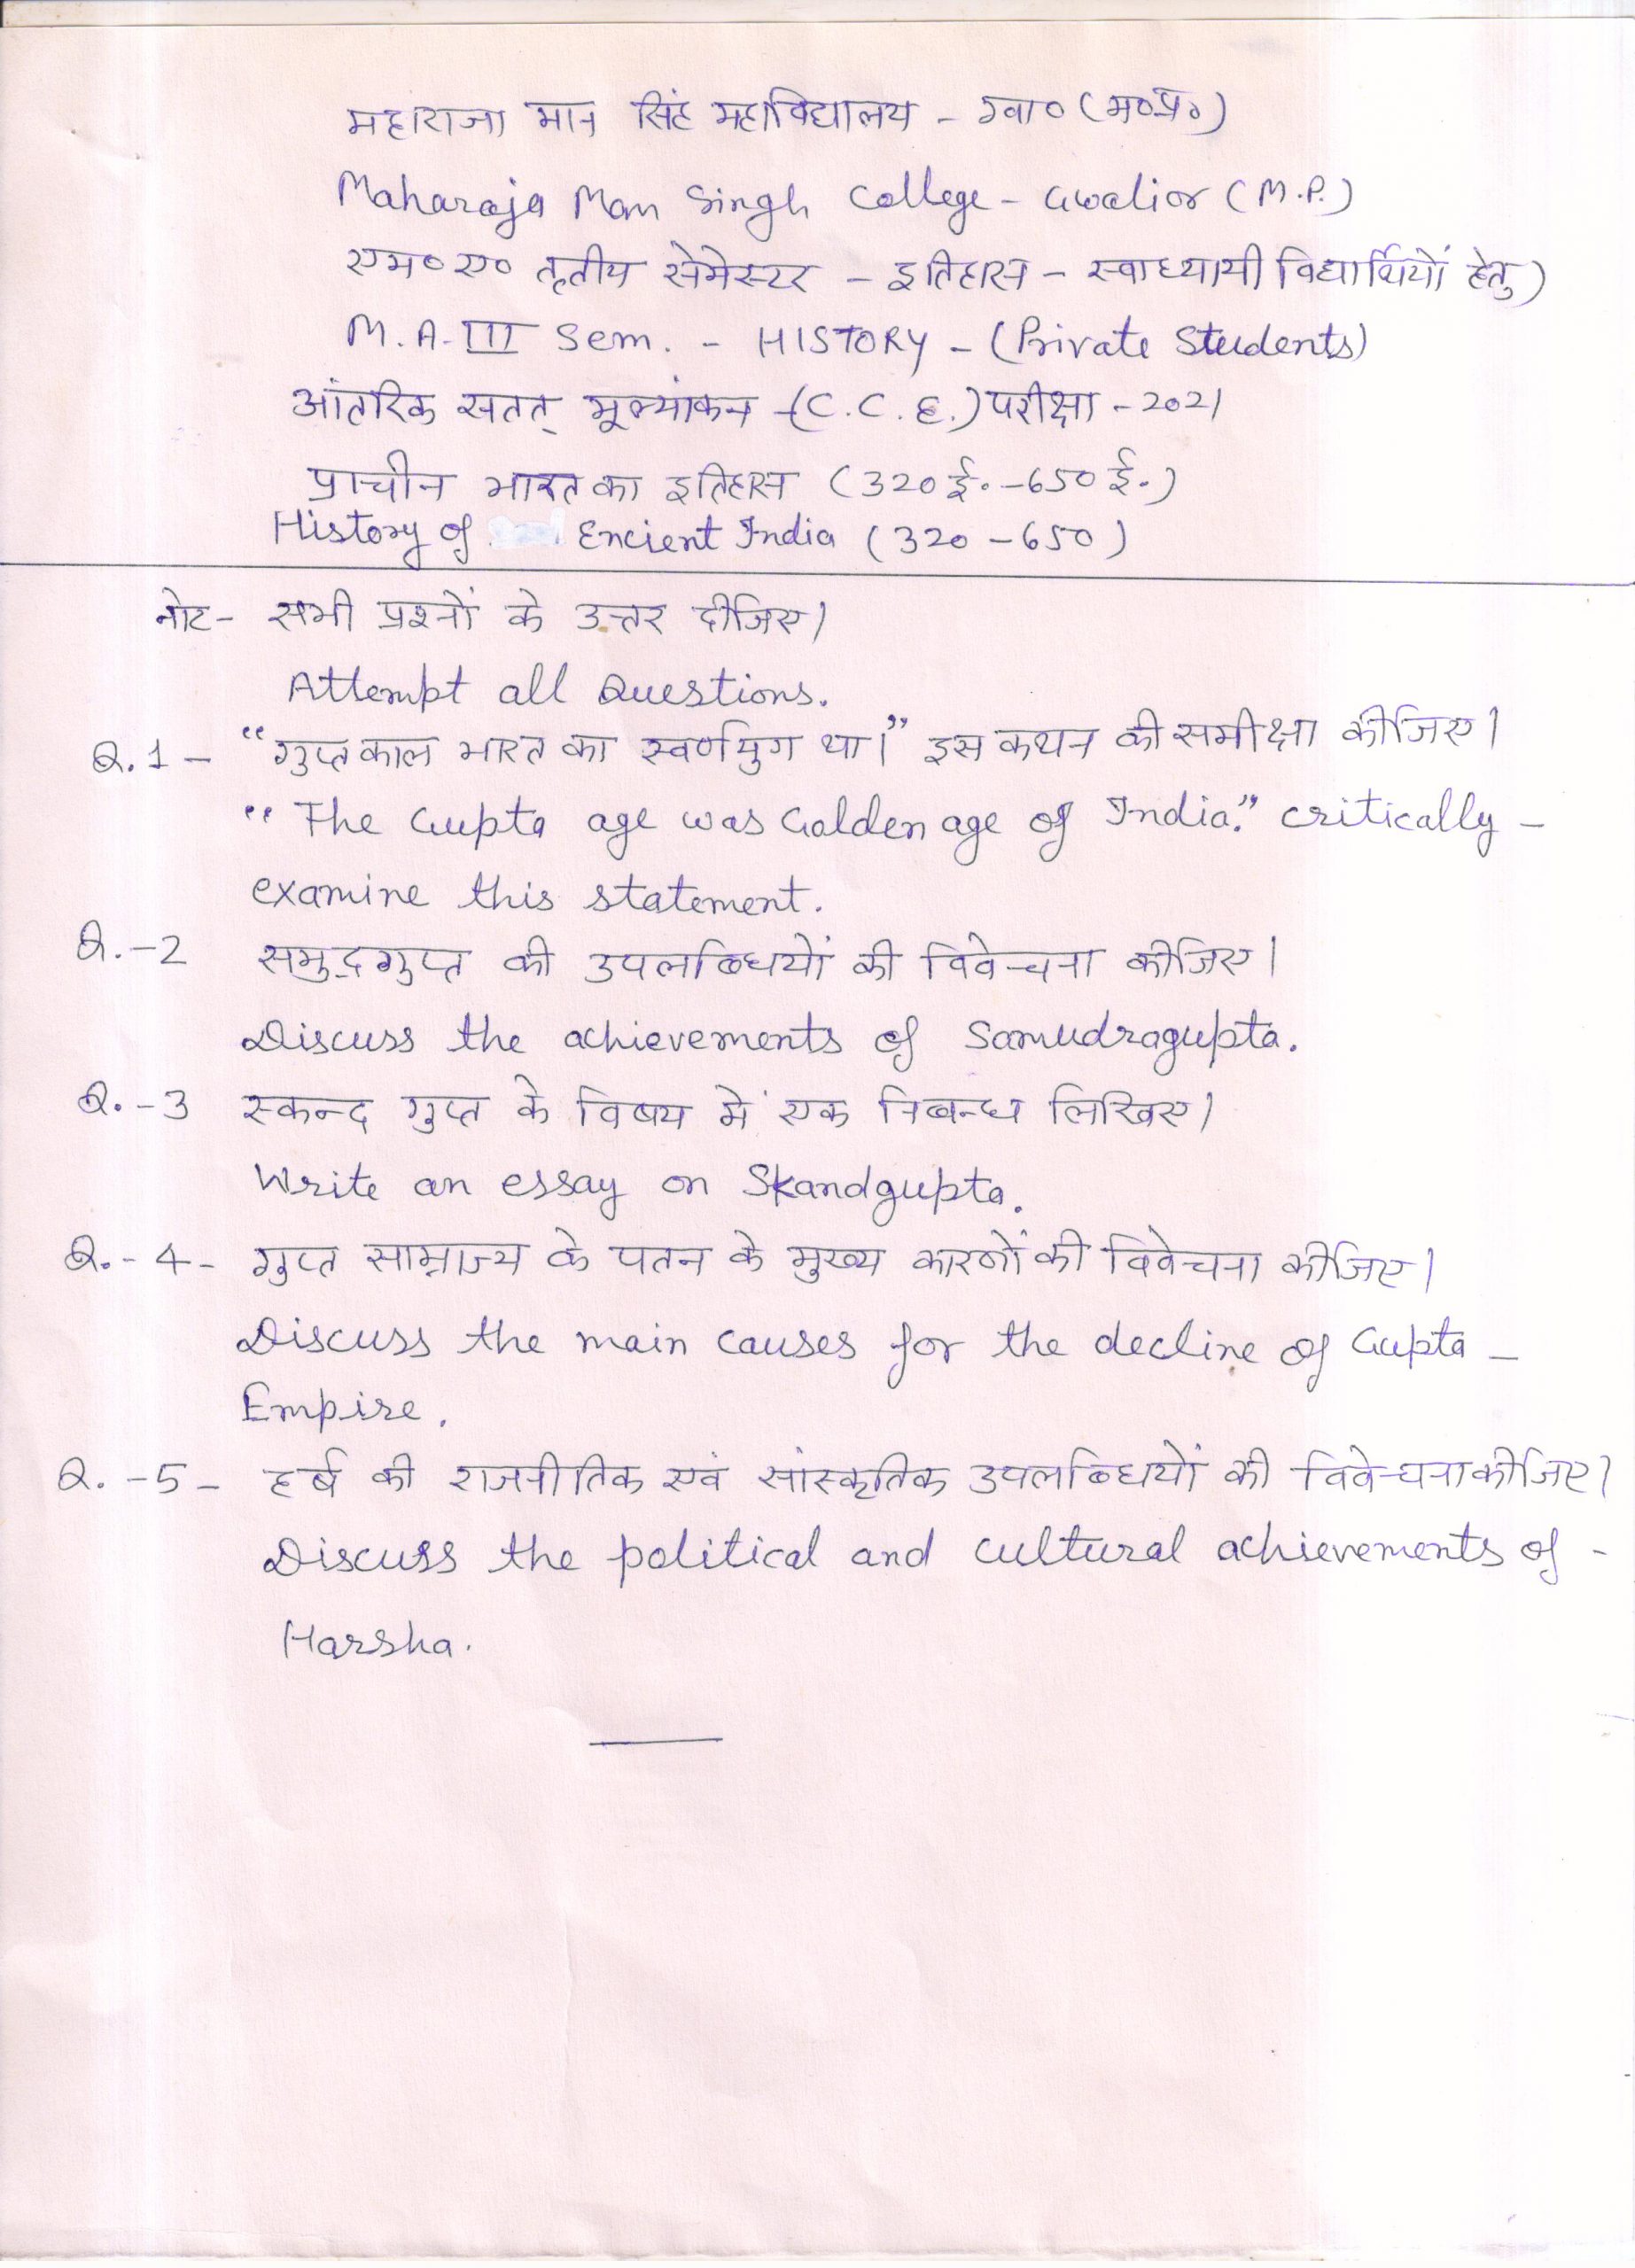 महाराजा मान सिंह महाविद्यालय - ग्वा० (म०प्र०)
Maharaja Man Singh College - Gwalior (M.P.)
एम० ए० तृतीय सेमेस्टर - इतिहास - स्वाध्यायी विद्यार्थियों हेतु)
M.A. III Sem. - HISTORY - (Private Students)
आंतरिक सतत् मूल्यांकन -(C.C.E.) परीक्षा - 2021
प्राचीन भारत का इतिहास (320 ई. - 650 ई.)
History of Encient India (320 - 650)
नोट - सभी प्रश्नों के उत्तर दीजिए।
Attempt all Questions.
Q.1 - "गुप्तकाल भारत का स्वर्णयुग था।" इस कथन की समीक्षा कीजिए।
"The Gupta age was Golden age of India." critically -
examine this statement.
Q.-2 समुद्रगुप्त की उपलब्धियों की विवेचना कीजिए।
Discuss the achievements of Samudragupta.
Q.-3 स्कन्द गुप्त के विषय में एक निबन्ध लिखिए।
Write an essay on Skandgupta.
Q.-4- गुप्त साम्राज्य के पतन के मुख्य कारणों की विवेचना कीजिए।
Discuss the main causes for the decline of Gupta -
Empire.
Q.-5- हर्ष की राजनीतिक एवं सांस्कृतिक उपलब्धियों की विवेचना कीजिए।
Discuss the political and cultural achievements of -
Harsha.